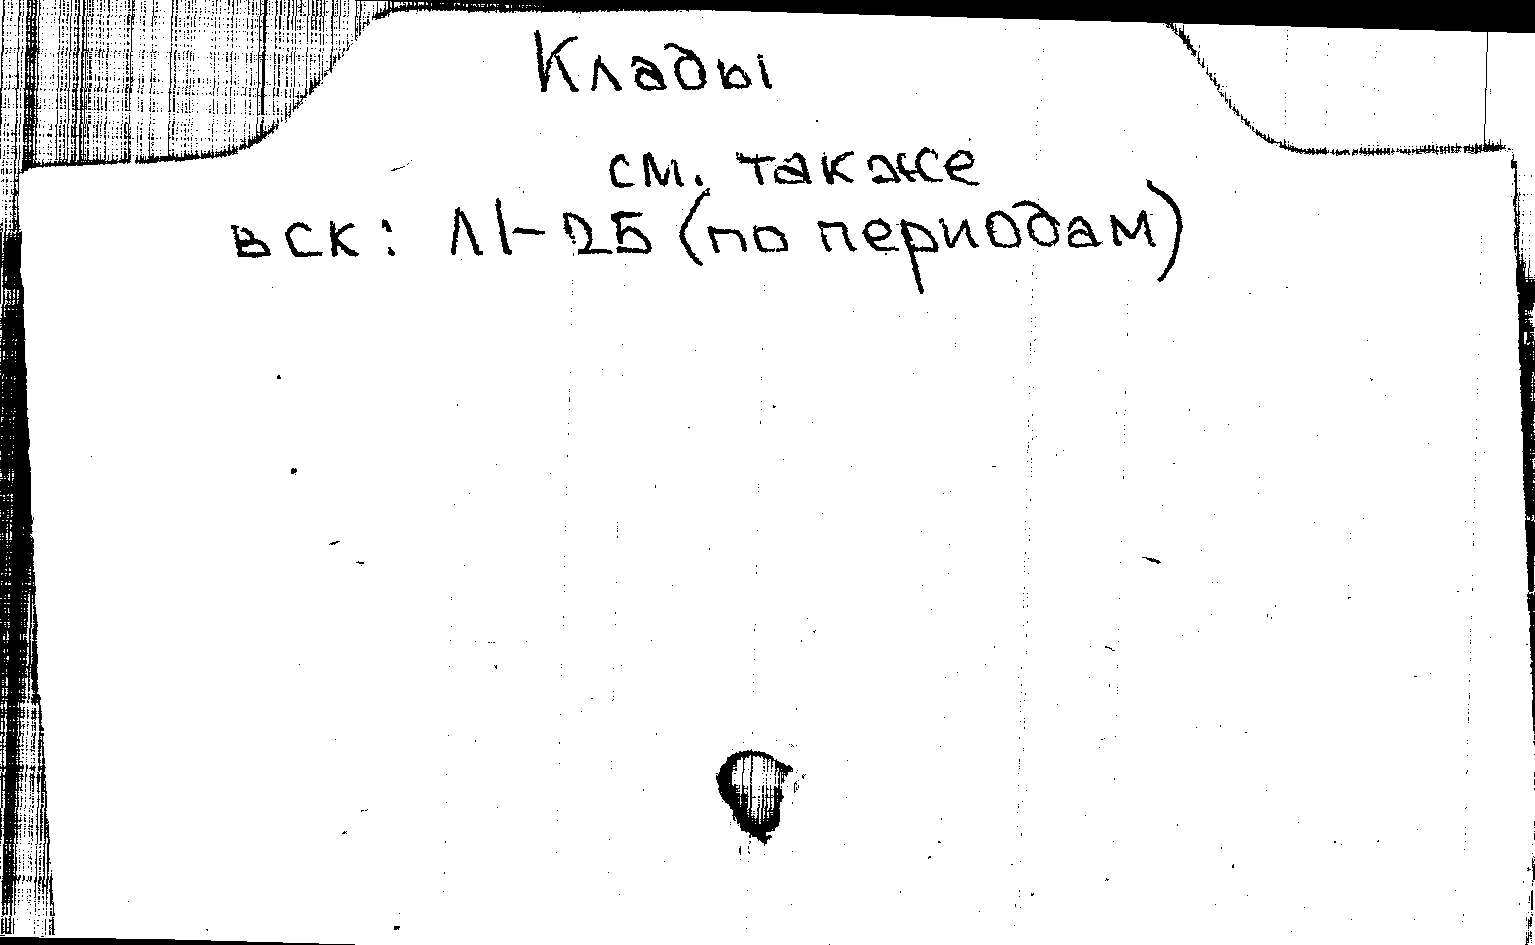 Клады
см. также
вск: Л1-25 (по периодам)